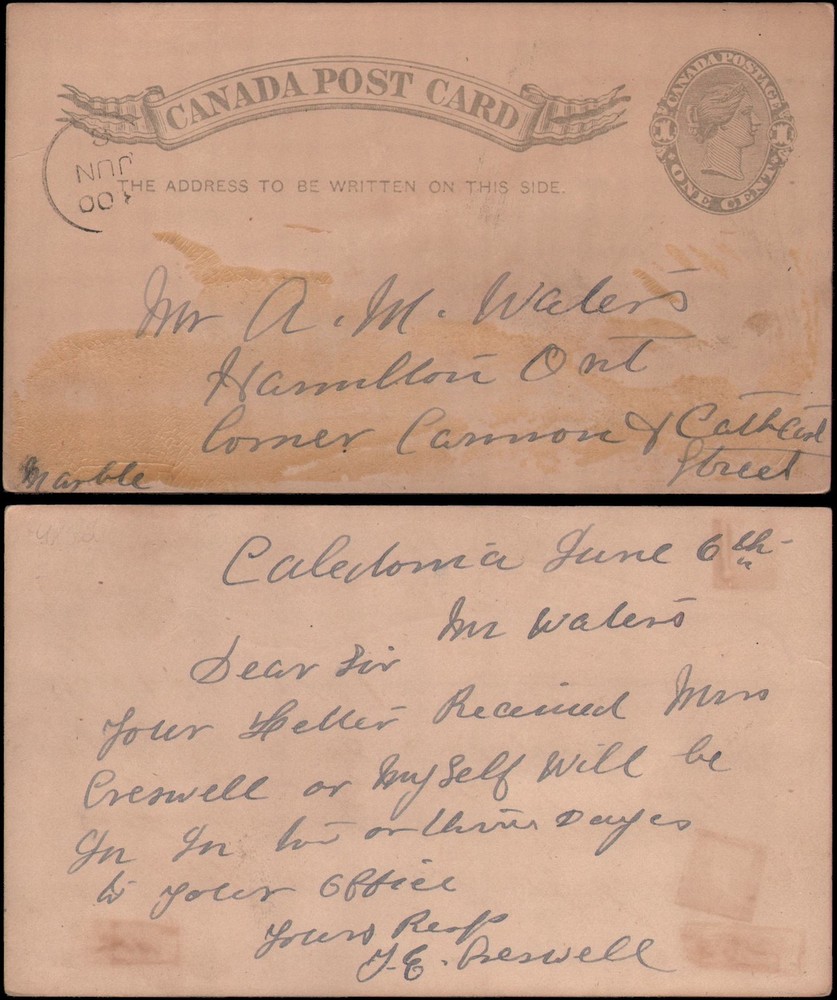 CANADA POST CARD
CANADA POSTAGE
1 1
ONE CENT
JUN
00
THE ADDRESS TO BE WRITTEN ON THIS SIDE.
Mr A. M. Waters
Hamilton Ont
Corner Cannon & Cathcart
Street
Marble
Caledonia June 6th
Mr Waters
Dear Sir
Your Letter Received Mrs
Creswell or Myself Will be
In In two or three Dayes
to your Office
Yours Resp
J. E. Creswell